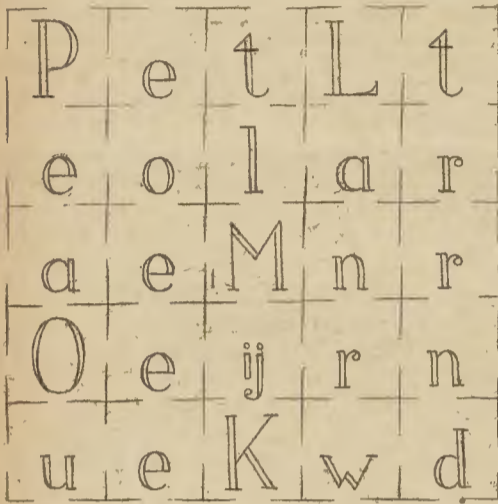 P e t L t
e o l a r
a e M n r
O e ij r n
u e K w d